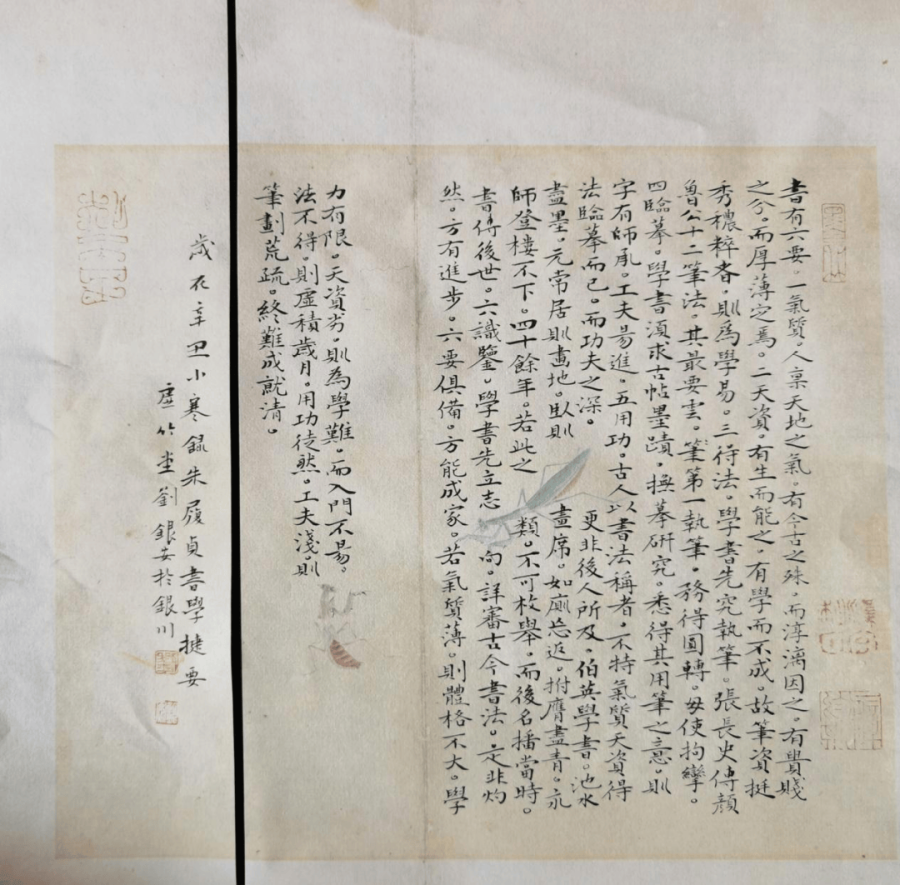 書有六要。一氣質。人稟天地之氣。有今古之殊。而淳漓因之。有貴賤
之分。而厚薄定焉。二天資。有生而能之。有學而不成。故筆資挺
秀穠粹者。則為學易。三得法。學書先究執筆。張長史傳顏
魯公十二筆法。其最要雲。筆第一執筆。務得圓轉。毋使拘攣。
四臨摹。學書須求古帖墨蹟。撫摹研究。悉得其用筆之意。則
字有師承。工夫易進。五用功。古人以書法稱者。不特氣質天資得
法臨摹而已。而功夫之深。更非後人所及。伯英學書。池水
盡墨。元常居則畫地。臥則畫席。如廁忘返。拊膺盡青。永
師登樓不下。四十餘年。若此之類。不可枚舉。而後名播當時。
書傳後世。六識鑒。學書先立志向。詳審古今書法。是非灼
然。方有進步。六要俱備。方能成家。若氣質薄。則體格不大。學
力有限。天資劣。則為學難。而入門不易。
法不得。則虛積歲月。用功徒然。工夫淺。則
筆劃荒疏。終難成就清。
歲在辛丑小寒錄朱履貞書學捷要
虛竹堂劉銀安於銀川